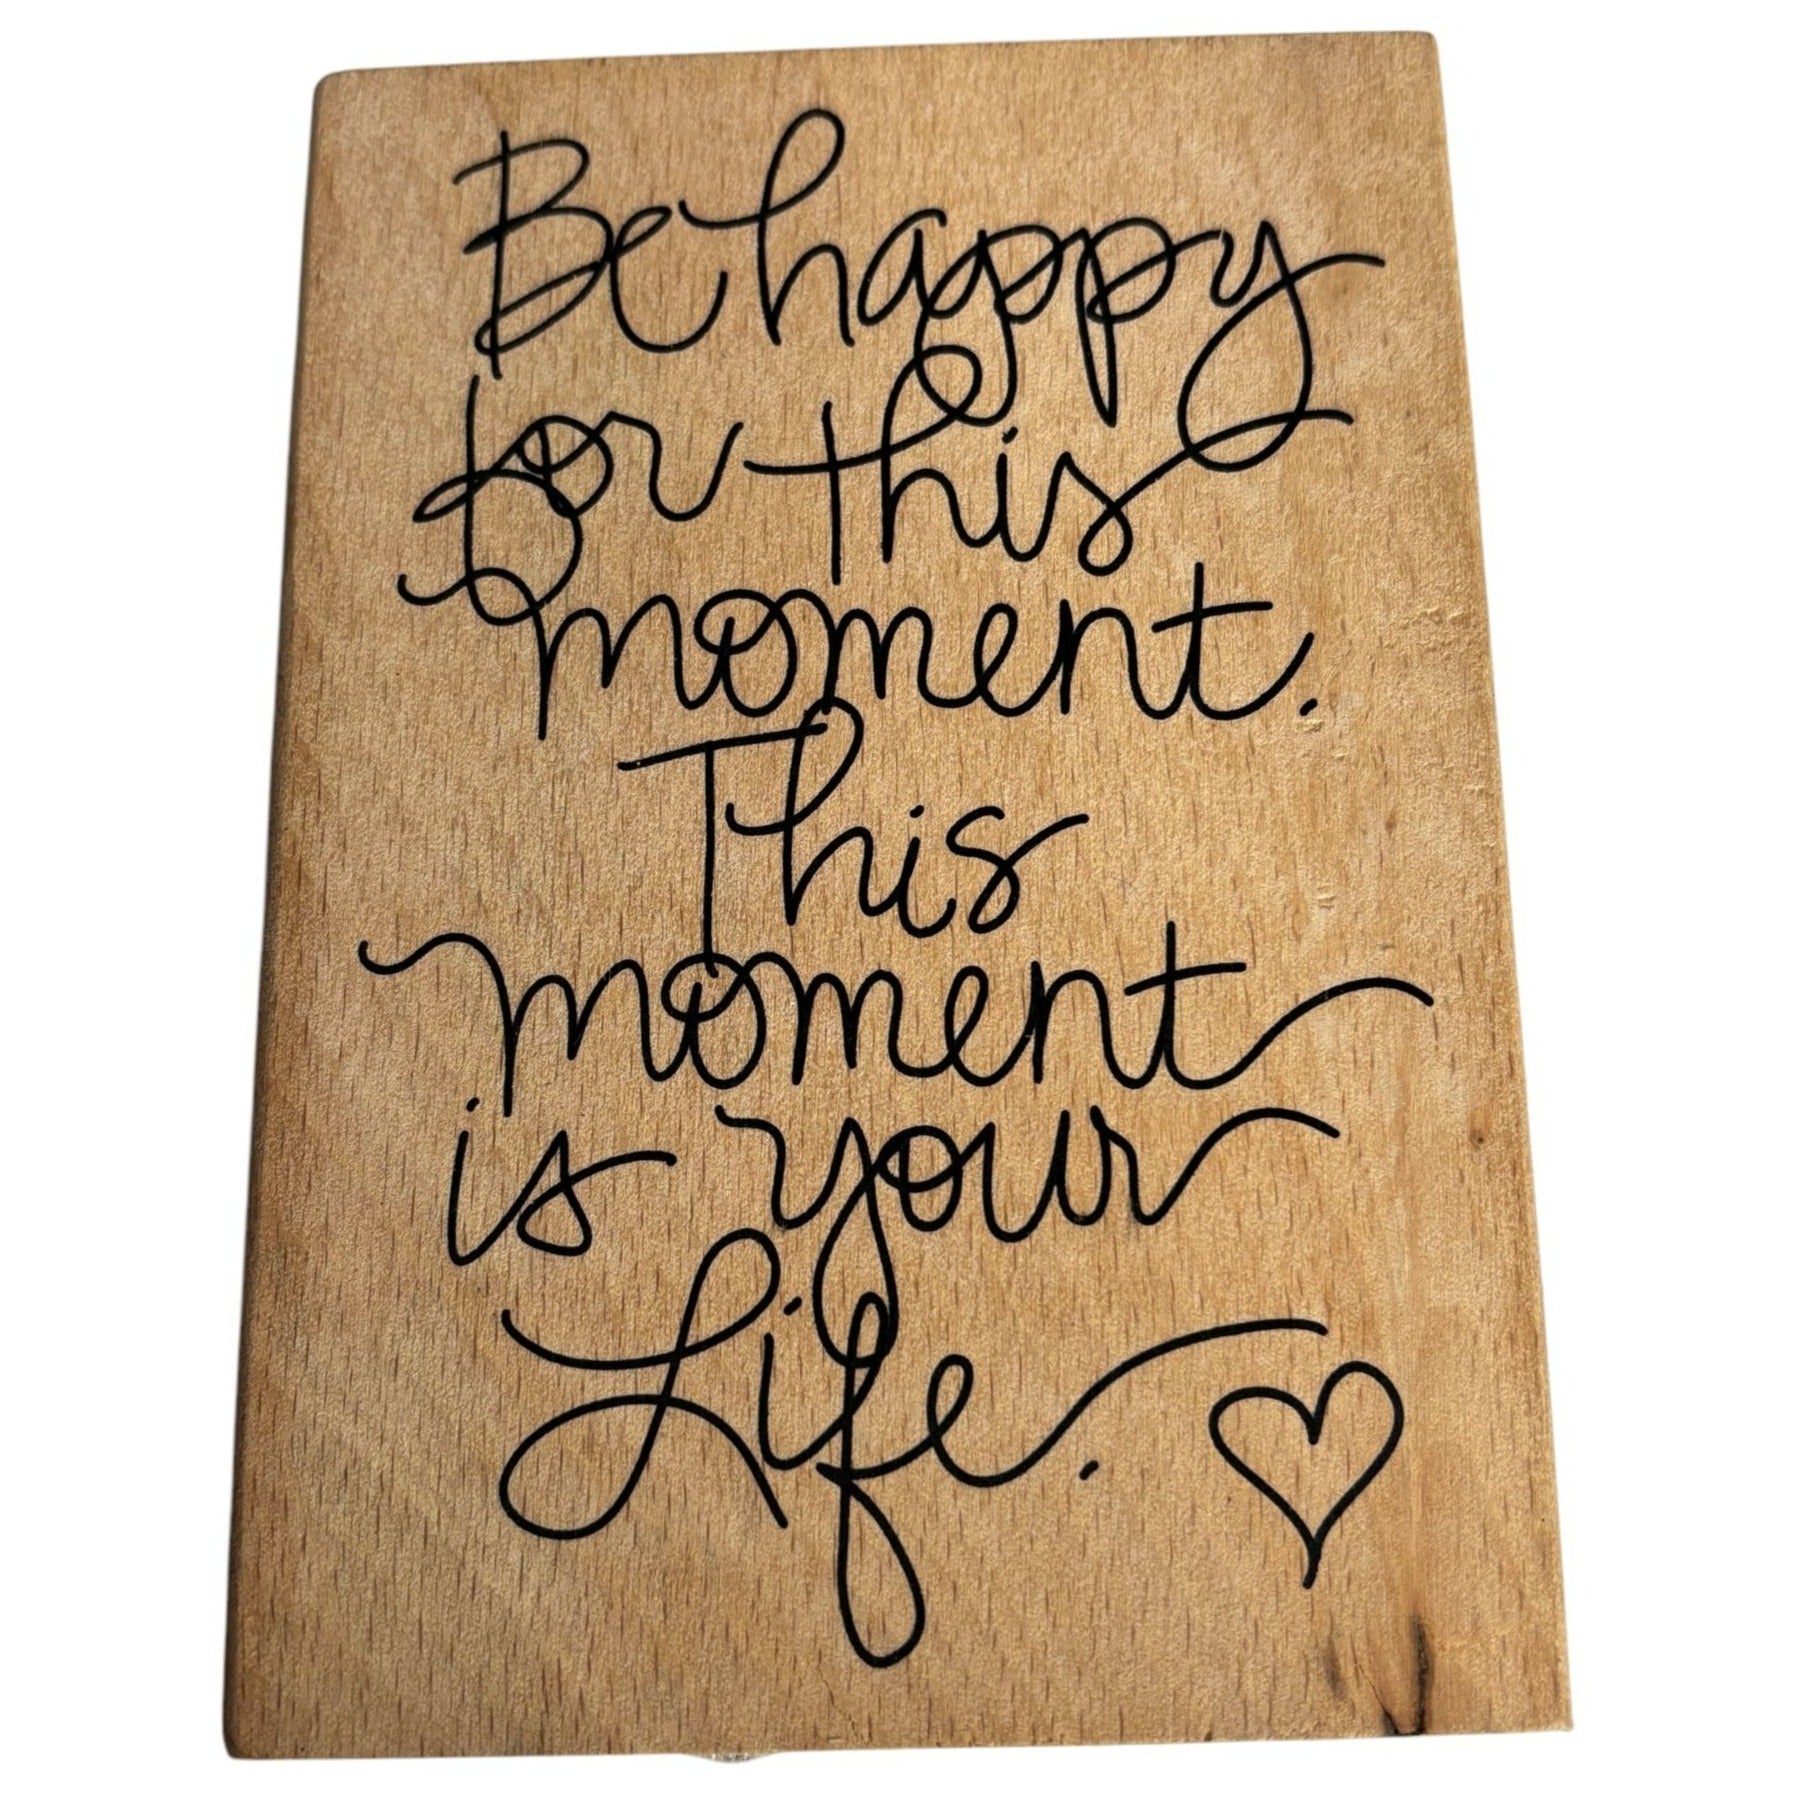 Be happy
for this
moment.
This
moment
is your
Life.